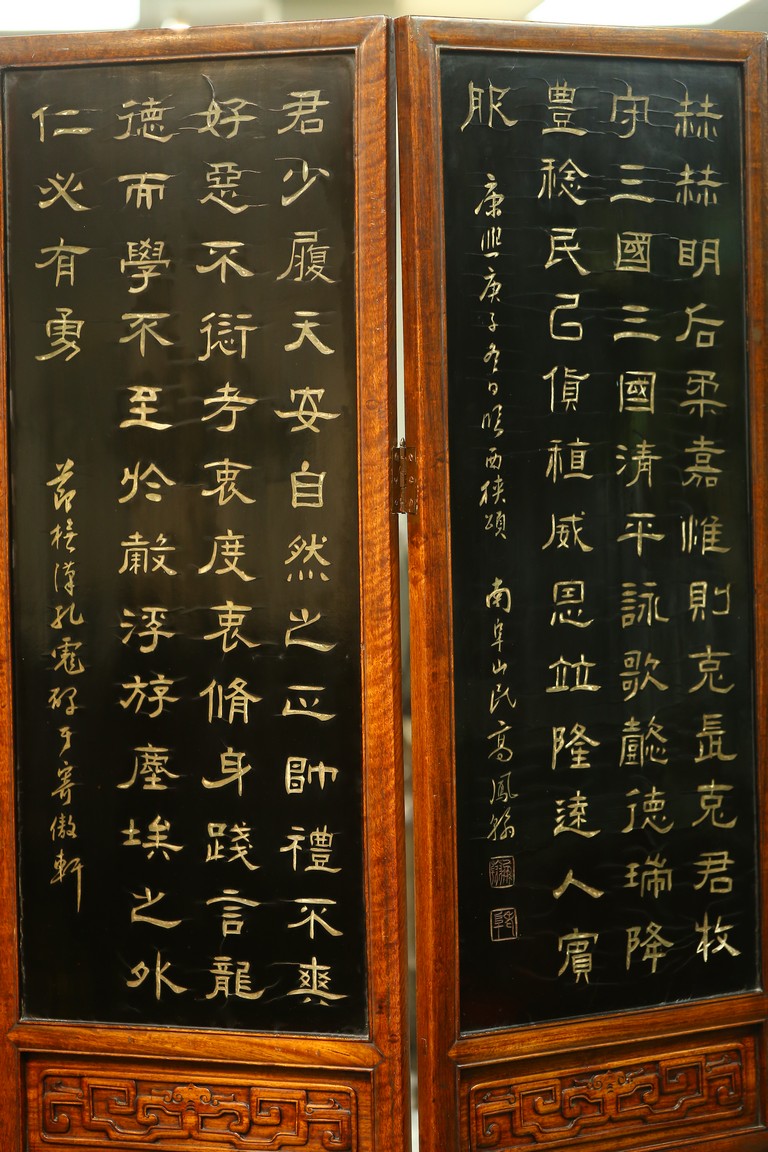 赫赫明后柔嘉惟則克長克君牧
守三國三國清平詠歌懿德瑞降
豊稔民㠯貨稙威恩竝隆遠人賓
服
康熙庚子冬日臨西狹頌 南阜山民高鳳翰
君少履天姿自然之正帥禮不爽
好惡不愆考衷度衷脩身踐言龍
德而學不至於穀浮斿塵埃之外
仁必有勇
節橅漢孔彪碑于寄傲軒